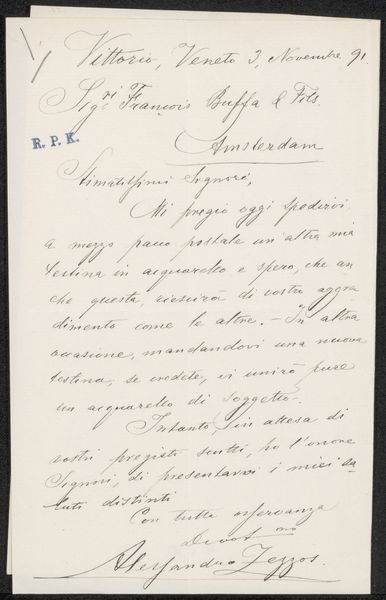 Vittorio, Veneto 3, Novembre 91.
Sigri François Buffa & Fils
Amsterdam
R. P. K.
Stimatissimi Signori,
Mi pregio oggi spedirvi,
a mezzo pacco postale un'altra mia
testina in acquarello e spero, che an-
che questa, riescirà di vostro aggra-
dimento come le altre. - In altra
occasione, mandandovi una nuova
testina, se credete, vi unirò pure
un acquarello di soggetto.
Intanto, in attesa di
vostri pregiati scritti, ho l'onore
Signori, di presentarvi i miei sa-
luti distinti
Con tutta osservanza
Devotmo
Alessandro Zezzos.